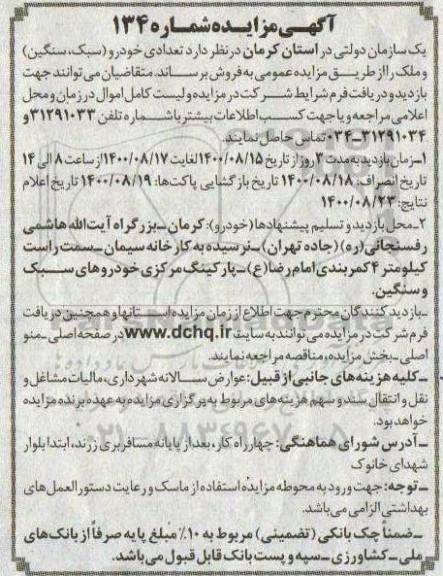 آگهی مزایده شماره ۱۳۴
یک سازمان دولتی در استان کرمان در نظر دارد تعدادی خودرو (سبک، سنگین)
و ملک را از طریق مزایده عمومی به فروش برساند. متقاضیان می توانند جهت
بازدید و دریافت فرم شرایط شرکت در مزایده و لیست کامل اموال در زمان و محل
اعلامی مراجعه و یا جهت کسب اطلاعات بیشتر با شماره تلفن ۳۱۲۹۱۰۳۳ و
۳۱۲۹۱۰۳۴-۰۳۴ تماس حاصل نمایند.
۱-زمان بازدید به مدت ۳ روز از تاریخ ۱۴۰۰/۰۸/۱۵ لغایت ۱۴۰۰/۰۸/۱۷ از ساعت ۸ الی ۱۴
تاریخ انصراف: ۱۴۰۰/۰۸/۱۸ تاریخ بازگشایی پاکت‌ها: ۱۴۰۰/۰۸/۱۹ تاریخ اعلام
نتایج: ۱۴۰۰/۰۸/۲۳
۲-محل بازدید و تسلیم پیشنهادها (خودرو): کرمان-بزرگراه آیت‌الله هاشمی
رفسنجانی(ره) (جاده تهران)-نرسیده به کارخانه سیمان-سمت راست
کیلومتر ۴ کمربندی امام رضا (ع)-پارکینگ مرکزی خودروهای سبک
و سنگین.
-بازدید کنندگان محترم جهت اطلاع از زمان مزایده استانها و همچنین دریافت
فرم شرکت در مزایده می توانند به سایت www.dchq.ir در صفحه اصلی-منو
اصلی-بخش مزایده، مناقصه مراجعه نمایند.
-کلیه هزینه های جانبی از قبیل: عوارض سالانه شهرداری، مالیات مشاغل و
نقل و انتقال سند و سهم هزینه های مربوط به برگزاری مزایده به عهده برنده مزایده
خواهد بود.
-آدرس شورای هماهنگی: چهارراه کار، بعد از پایانه مسافربری زرند، ابتدا بلوار
شهدای خانوک
-توجه: جهت ورود به محوطه مزایده استفاده از ماسک و رعایت دستورالعمل های
بهداشتی الزامی می باشد.
-ضمناً چک بانکی (تضمینی) مربوط به ۱۰٪ مبلغ پایه صرفاً از بانک های
ملی-کشاورزی-سپه و پست بانک قابل قبول می باشد.